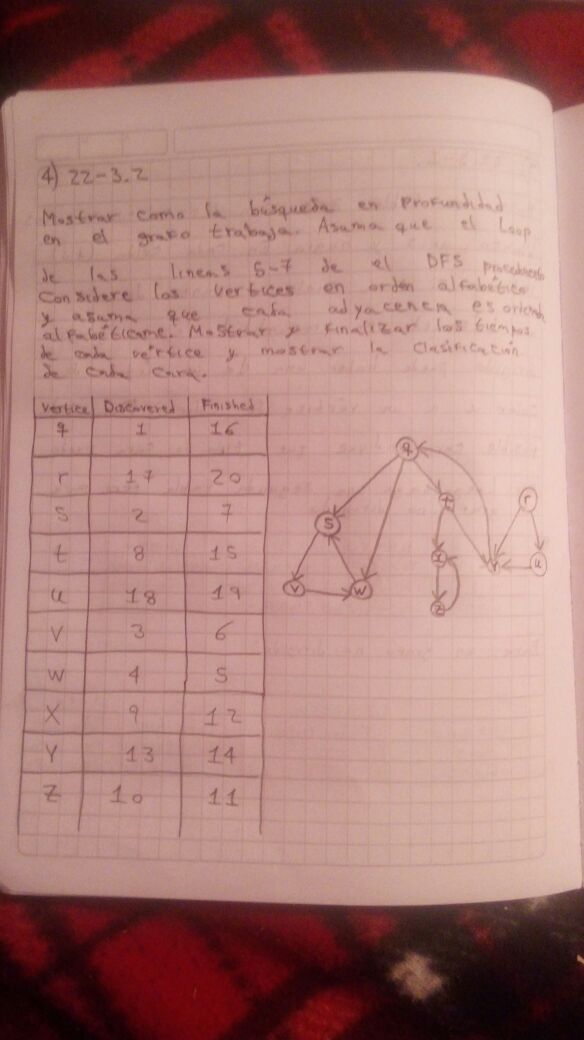 4) 22-3.2
Mostrar como la búsqueda en profundidad
en el grafo trabaja. Asuma que el Loop
de las lineas 5-7 de el DFS
Considere los vertices en orden alfabético
y asuma que cada adyacencia es
Mostrar y finalizar los tiempos
de cada vértice y mostrar la clasificación
de cada cara.
Vertice Discovered Finished
q 1 16
r 17 20
S 2 7
t 8 15
u 18 19
V 3 6
W 4 5
X 9 12
Y 13 14
Z 10 11
q
t
r
S
x
Y
u
V
W
z